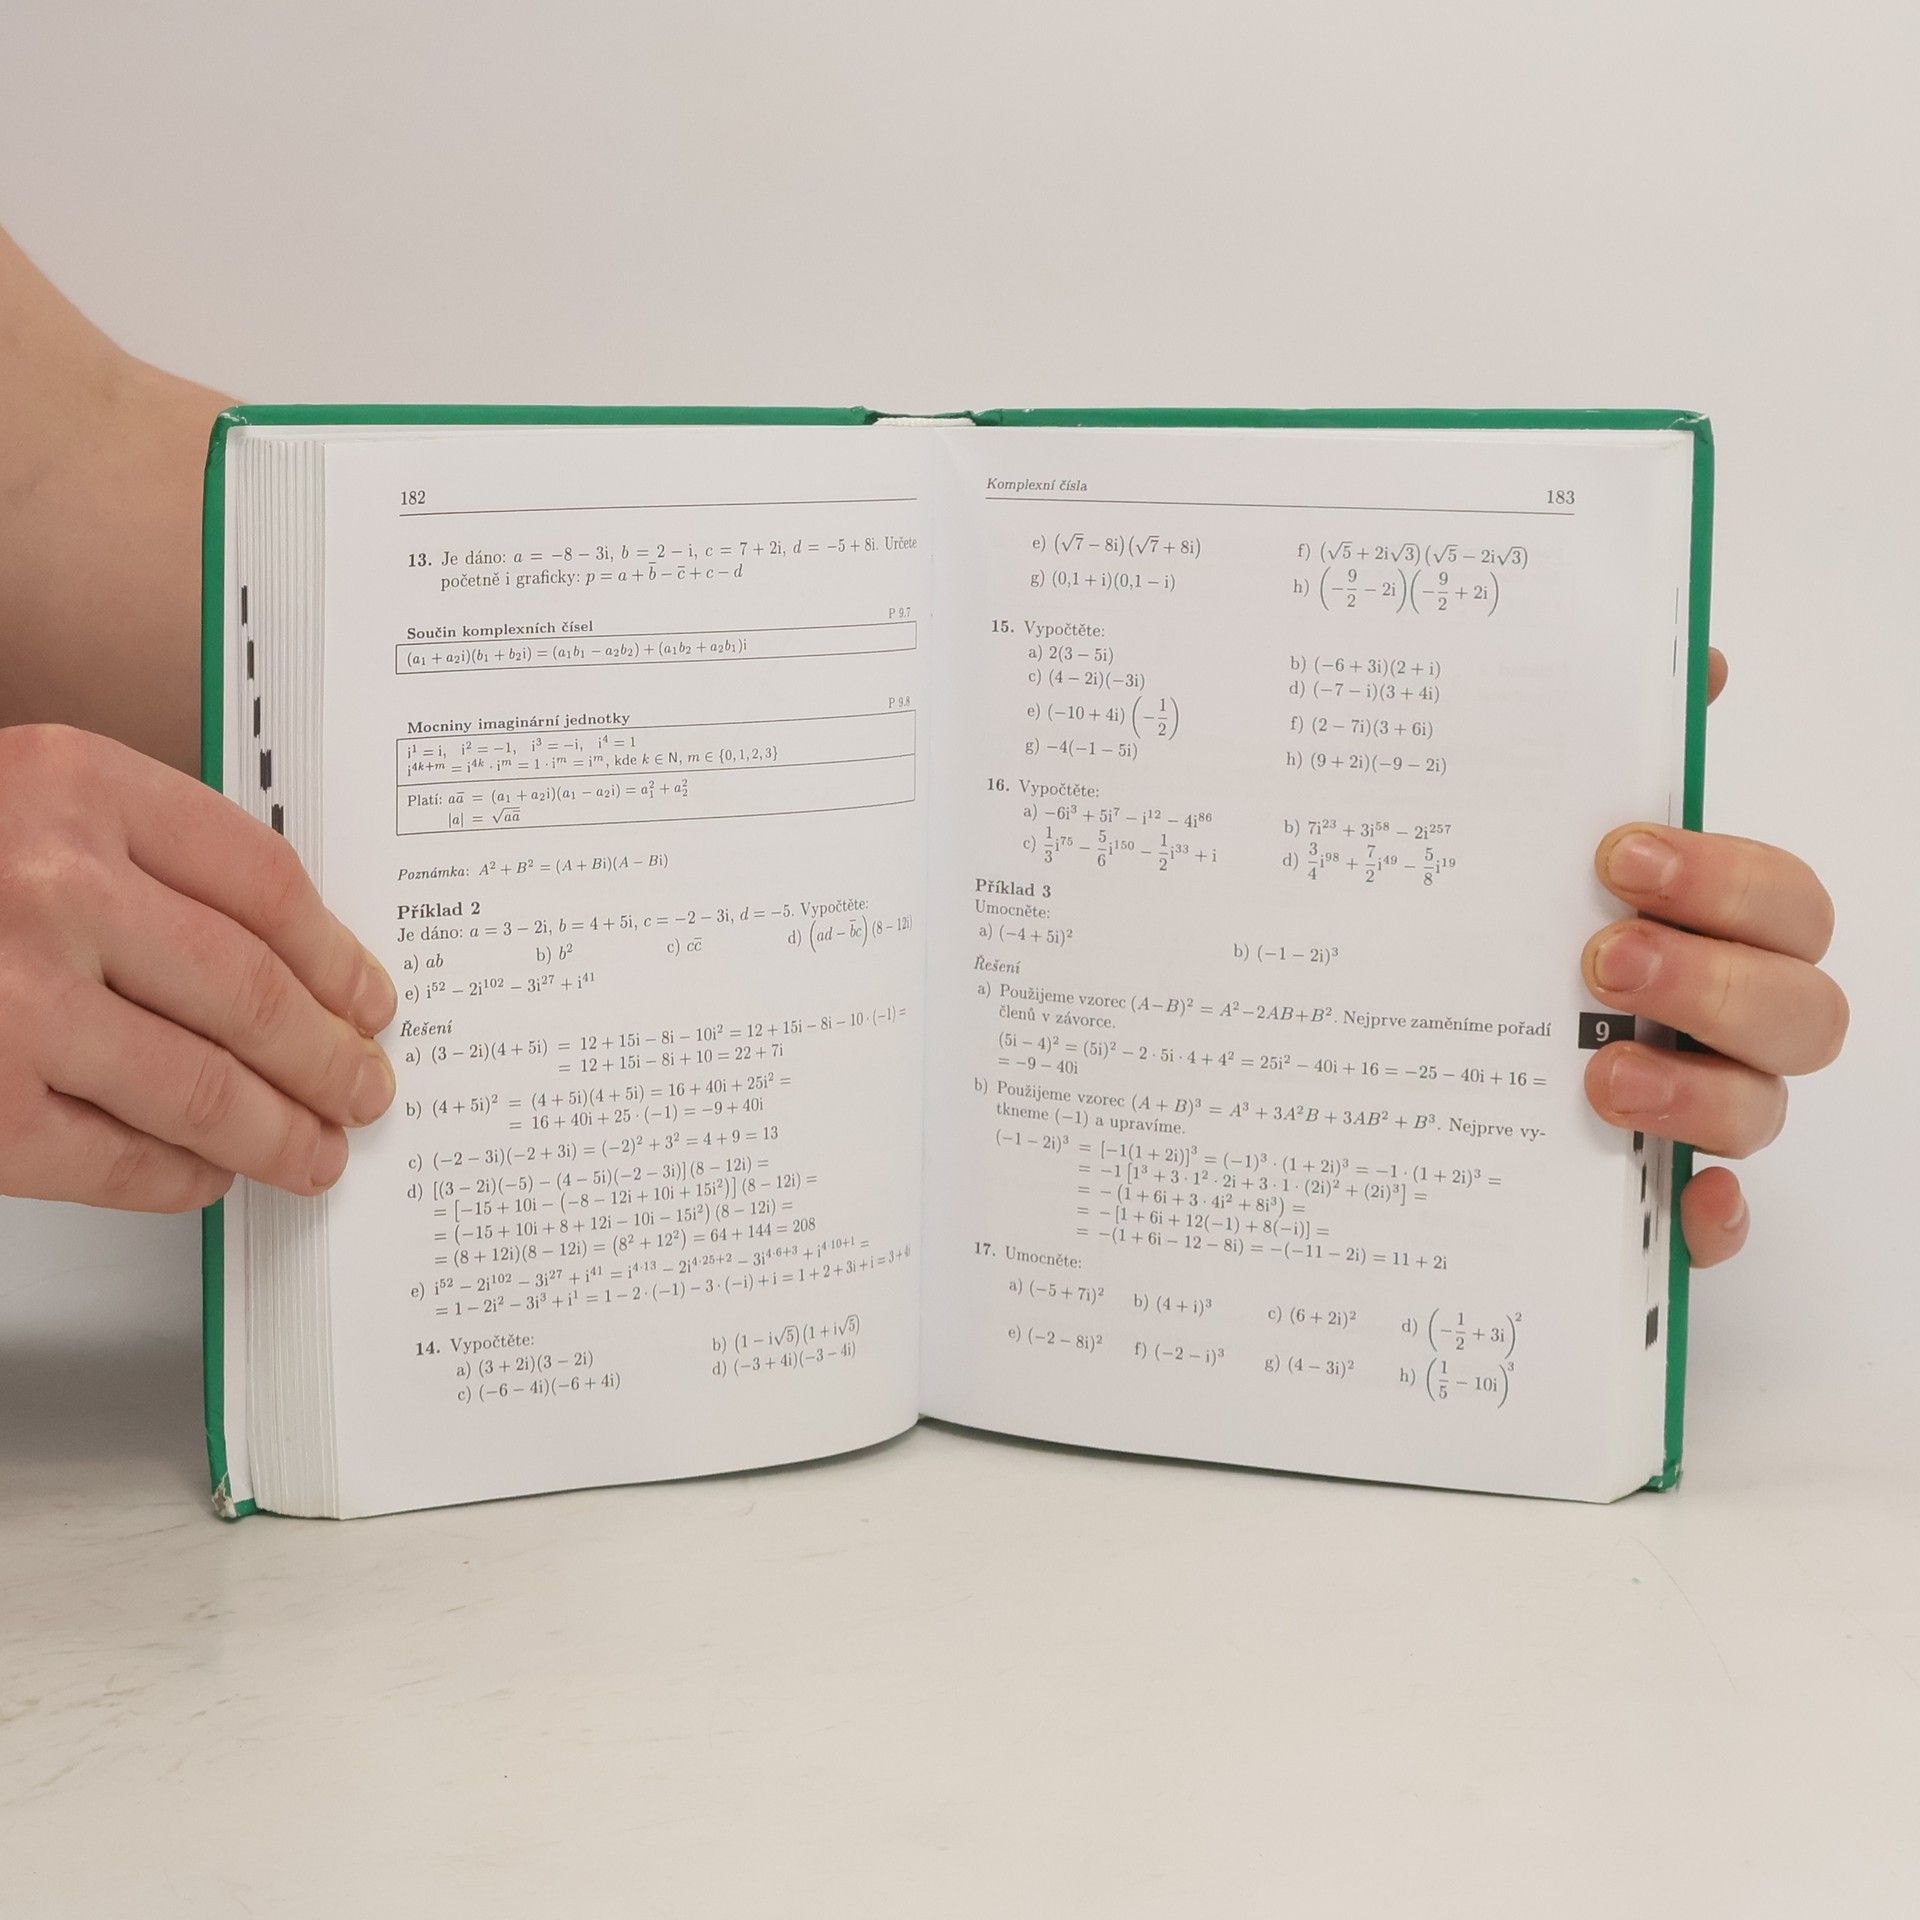 182
13. Je dáno: a = −8 − 3i, b = 2 − i, c = 7 + 2i, d = −5 + 8i. Určete
početně i graficky: p = a + b̄ − c̄ + c − d
P 9.7
Součin komplexních čísel
(a₁ + a₂i)(b₁ + b₂i) = (a₁b₁ − a₂b₂) + (a₁b₂ + a₂b₁)i
P 9.8
Mocniny imaginární jednotky
i¹ = i, i² = −1, i³ = −i, i⁴ = 1
i⁴ᵏ⁺ᵐ = i⁴ᵏ · iᵐ = 1 · iᵐ = iᵐ, kde k ∈ N, m ∈ {0, 1, 2, 3}
Platí: aā = (a₁ + a₂i)(a₁ − a₂i) = a₁² + a₂²
|a| = √aā
Poznámka: A² + B² = (A + Bi)(A − Bi)
Příklad 2
Je dáno: a = 3 − 2i, b = 4 + 5i, c = −2 − 3i, d = −5. Vypočtěte:
a) ab b) b² c) cc̄ d) (ad − b̄c)(8 − 12i)
e) i⁵² − 2i¹⁰² − 3i²⁷ + i⁴¹
Řešení
a) (3 − 2i)(4 + 5i) = 12 + 15i − 8i − 10i² = 12 + 15i − 8i − 10 · (−1) =
= 12 + 15i − 8i + 10 = 22 + 7i
b) (4 + 5i)² = (4 + 5i)(4 + 5i) = 16 + 40i + 25i² =
= 16 + 40i + 25 · (−1) = −9 + 40i
c) (−2 − 3i)(−2 + 3i) = (−2)² + 3² = 4 + 9 = 13
d) [(3 − 2i)(−5) − (4 − 5i)(−2 − 3i)] (8 − 12i) =
= [−15 + 10i − (−8 − 12i + 10i + 15i²)] (8 − 12i) =
= (−15 + 10i + 8 + 12i − 10i − 15i²) (8 − 12i) =
= (8 + 12i)(8 − 12i) = (8² + 12²) = 64 + 144 = 208
e) i⁵² − 2i¹⁰² − 3i²⁷ + i⁴¹ = i⁴·¹³ − 2i⁴·²⁵⁺² − 3i⁴·⁶⁺³ + i⁴·¹⁰⁺¹ =
= 1 − 2i² − 3i³ + i¹ = 1 − 2 · (−1) − 3 · (−i) + i = 1 + 2 + 3i + i = 3 + 4i
14. Vypočtěte:
a) (3 + 2i)(3 − 2i) b) (1 − i√5)(1 + i√5)
c) (−6 − 4i)(−6 + 4i) d) (−3 + 4i)(−3 − 4i)
Komplexní čísla 183
e) (√7 − 8i)(√7 + 8i) f) (√5 + 2i√3)(√5 − 2i√3)
g) (0,1 + i)(0,1 − i) h) (−9/2 − 2i)(−9/2 + 2i)
15. Vypočtěte:
a) 2(3 − 5i) b) (−6 + 3i)(2 + i)
c) (4 − 2i)(−3i) d) (−7 − i)(3 + 4i)
e) (−10 + 4i)(−1/2) f) (2 − 7i)(3 + 6i)
g) −4(−1 − 5i) h) (9 + 2i)(−9 − 2i)
16. Vypočtěte:
a) −6i³ + 5i⁷ − i¹² − 4i⁸⁶ b) 7i²³ + 3i⁵⁸ − 2i²⁵⁷
c) 1/3 i⁷⁵ − 5/6 i¹⁵⁰ − 1/2 i³³ + i d) 3/4 i⁹⁸ + 7/2 i⁴⁹ − 5/8 i¹⁹
Příklad 3
Umocněte:
a) (−4 + 5i)² b) (−1 − 2i)³
Řešení
a) Použijeme vzorec (A−B)² = A²−2AB+B². Nejprve zaměníme pořadí
členů v závorce.
(5i − 4)² = (5i)² − 2 · 5i · 4 + 4² = 25i² − 40i + 16 = −25 − 40i + 16 =
= −9 − 40i
b) Použijeme vzorec (A + B)³ = A³ + 3A²B + 3AB² + B³. Nejprve vy-
tkneme (−1) a upravíme.
(−1 − 2i)³ = [−1(1 + 2i)]³ = (−1)³ · (1 + 2i)³ = −1 · (1 + 2i)³ =
= −1 [1³ + 3 · 1² · 2i + 3 · 1 · (2i)² + (2i)³] =
= − (1 + 6i + 3 · 4i² + 8i³) =
= − [1 + 6i + 12(−1) + 8(−i)] =
= −(1 + 6i − 12 − 8i) = −(−11 − 2i) = 11 + 2i
17. Umocněte:
a) (−5 + 7i)² b) (4 + i)³ c) (6 + 2i)² d) (−1/2 + 3i)²
e) (−2 − 8i)² f) (−2 − i)³ g) (4 − 3i)² h) (1/5 − 10i)³
9